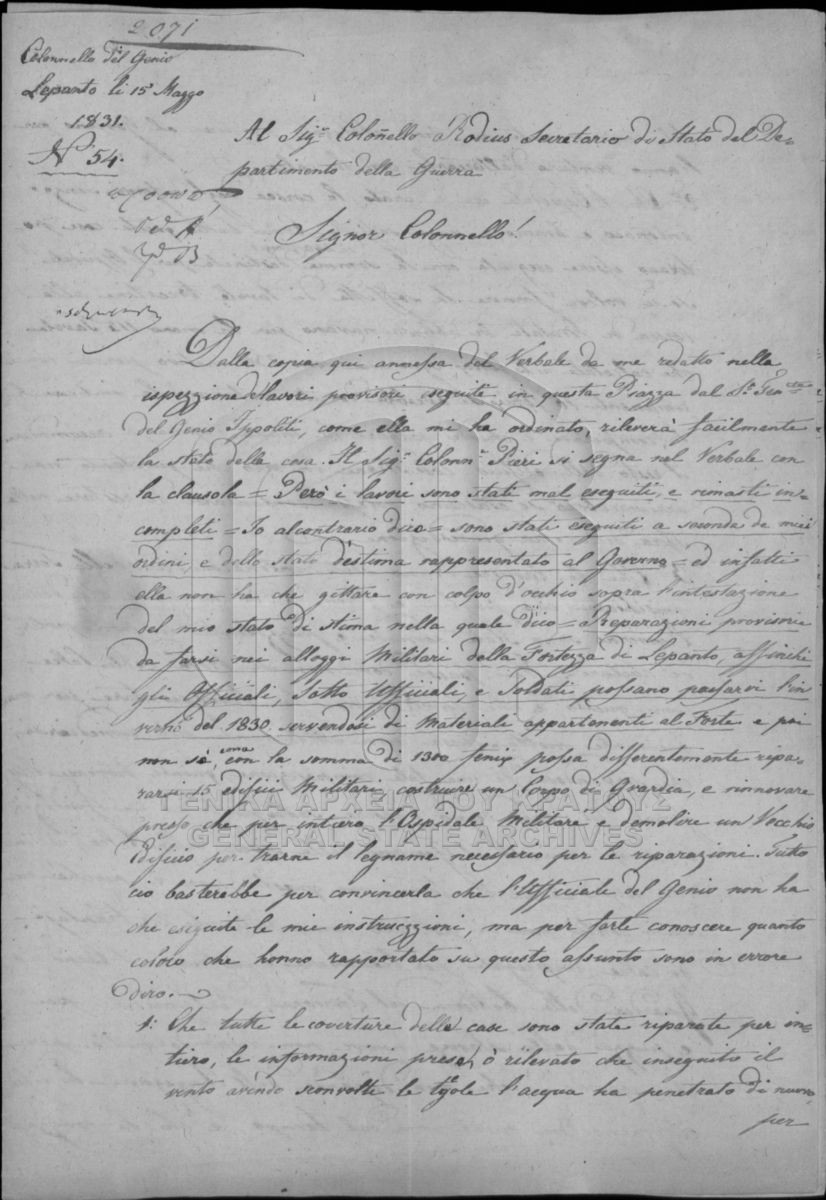 2071
Colonnello del Genio
Lepanto li 15 Maggo
1831.
N° 54.
Al Sigr Coloñello Rodius Secretario di Stato del De=
partimento della Guerra
Signor Colonnello!
Dalla copia qui annessa del Verbale da me redatto nella
ispezzione de lavori provisorj eseguiti in questa Piazza dal Sr Tente
del Genio Ippoliti, come ella mi ha ordinato, rileverà facilmente
lo stato della cosa. Il Sigr Colonno Pieri si segna nel Verbale con
la clausola = Però i lavori sono stati mal eseguiti, e rimasti in=
completi = Io alcontrario dico = sono stati eseguiti a seconda de miei
ordini, e dello stato d'estima rappresentato al Governo = ed infatti
ella non ha che gittare con colpo d'occhio sopra l'intestazione
del mio stato di stima nella quale dico = Reparazioni provisorie
da farsi nei alloggi Militari della Fortezza di Lepanto, affinchè
gli Officiali, Sotto Ufficiali, e Soldati possano passarvi l'in
verno del 1830. servendosi di Materiali appartenenti al Forte e poi
non sò, come con la somma di 1300 fenix possa differentemente ripa=
rarsi 15 edifici Militari, costruire un Corpo di Guardia, e rinnovare
presso che per intiero l'Ospidale Militare e demolire un Vecchio
Edificio per trarne il legname necessario per le riparazioni. Tutto
cio basterebbe per convincerla che l'Ufficiale del Genio non ha
che esiguite le mie instruczzioni, ma per farle conoscere quanto
coloro che honno rapportato su questo assunto sono in errore
diro.
1: Che tutte le coverture delle case sono state riparate per in=
tiero, le informazioni prese, ò rilevato che inseguito il
vento avendo sconvolte le tgole l'acqua ha penetrato di nuovo
per
ΓΕΝΙΚΑ ΑΡΧΕΙΑ ΤΟΥ ΚΡΑΤΟΥΣ
GENERAL STATE ARCHIVES